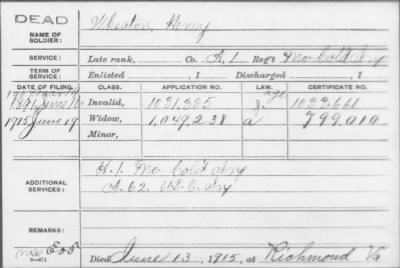 DEAD
Wheaton, Henry
NAME OF SOLDIER:
SERVICE: Late rank, Co. A. 1 Reg't Mo. Cold Inf
TERM OF SERVICE: Enlisted , 1 Discharged , 1
DATE OF FILING. CLASS. APPLICATION NO. LAW. CERTIFICATE NO.
1891 June 16 Invalid, 1031,385 1033.661
1915 June 19 Widow, 1,049,238 a 799,010
Minor,
ADDITIONAL SERVICES:
H. 1. Mo. Cold Inf
A. 62. U.S.C. Inf
REMARKS:
Died June 13, 1915, at Richmond Va